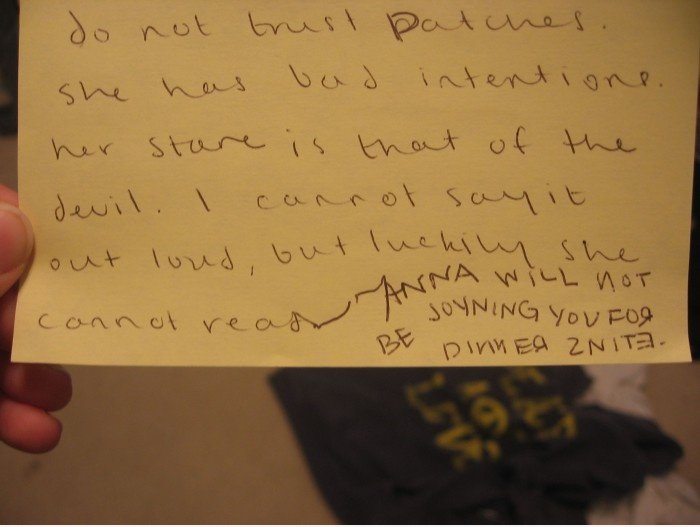 do not trust Patches.
she has bad intentions.
her stare is that of the
devil. I cannot say it
out loud, but luckily she
cannot read
ANNA WILL NOT
BE JOYNING YOU FOR
DINNER 2NITE.